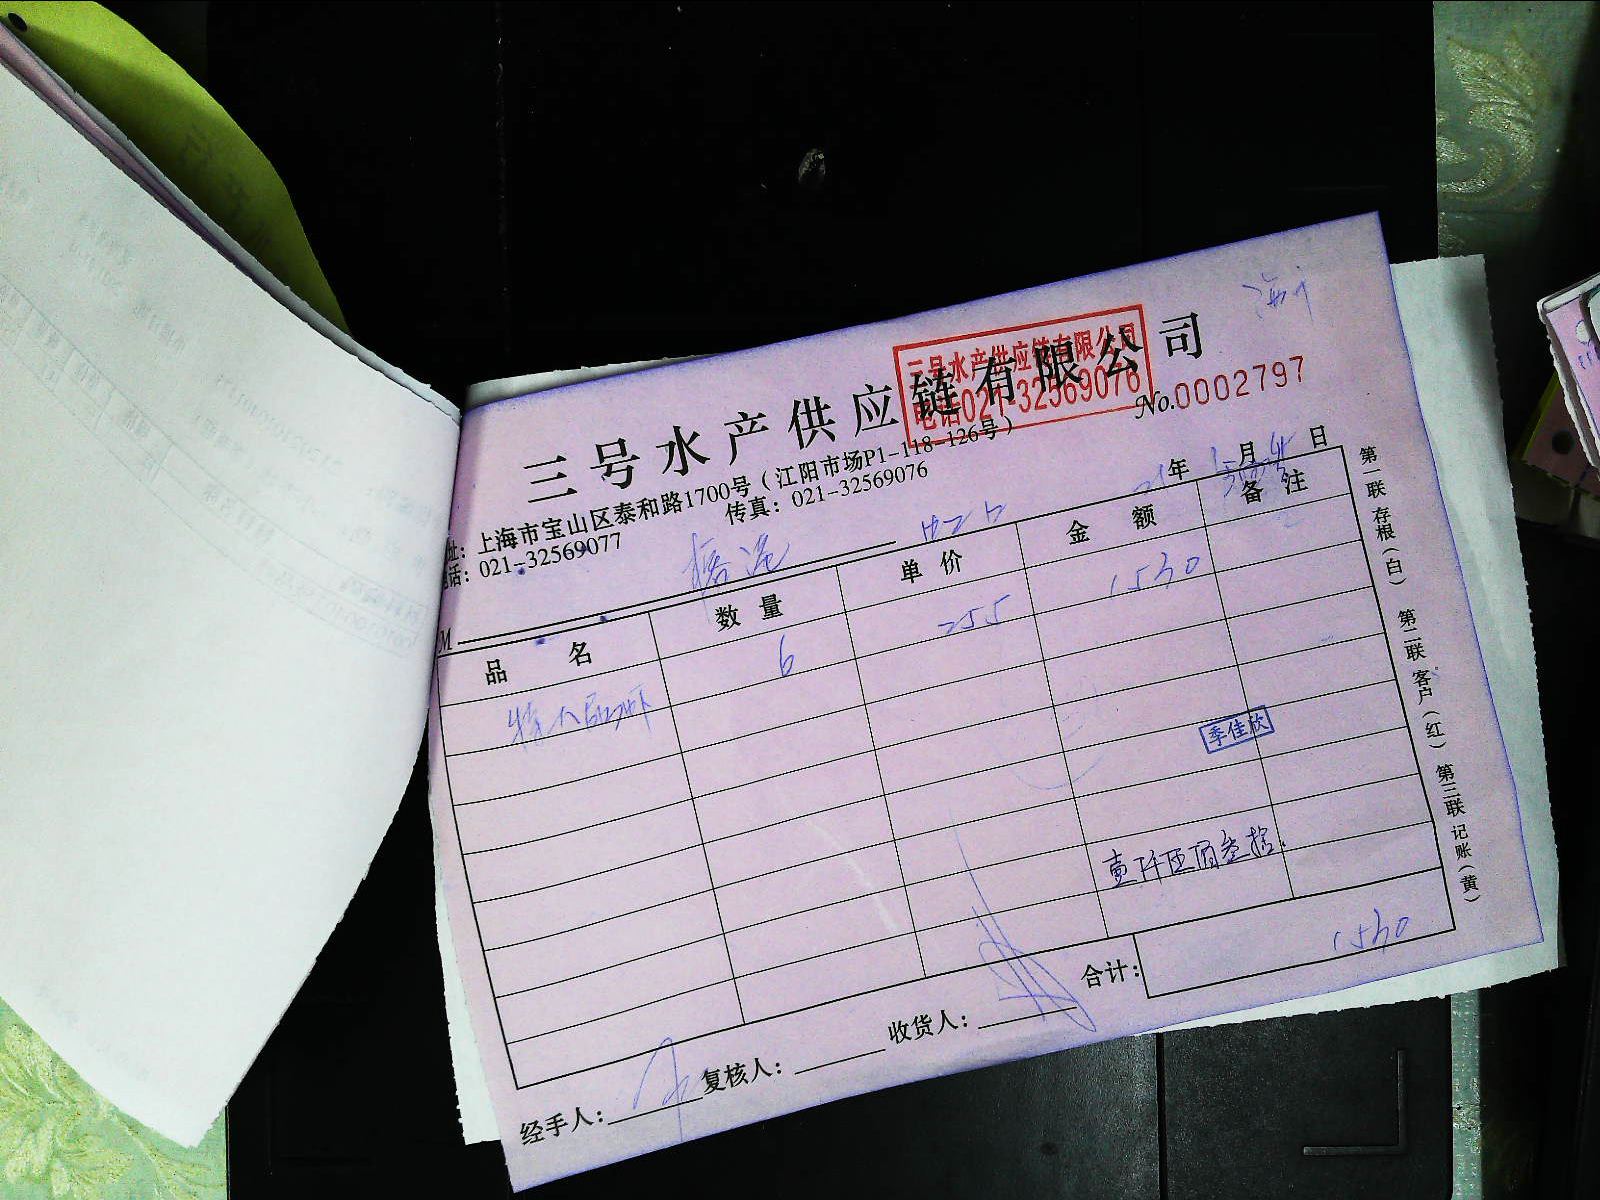 三号水产供应链有限公司
三号水产供应链有限公司
电话021-32569076
No.0002797
址：上海市宝山区泰和路1700号（江阳市场P1-118-126号）
电话：021-32569077 传真：021-32569076
21年 1月 日
M
品 名 数 量 单 价 金 额 备 注
特大 虾 6 255 1530
季佳欣
壹仟五佰叁拾
合计： 1530
经手人： 复核人： 收货人：
第一联 存根（白） 第二联 客户（红） 第三联 记账（黄）